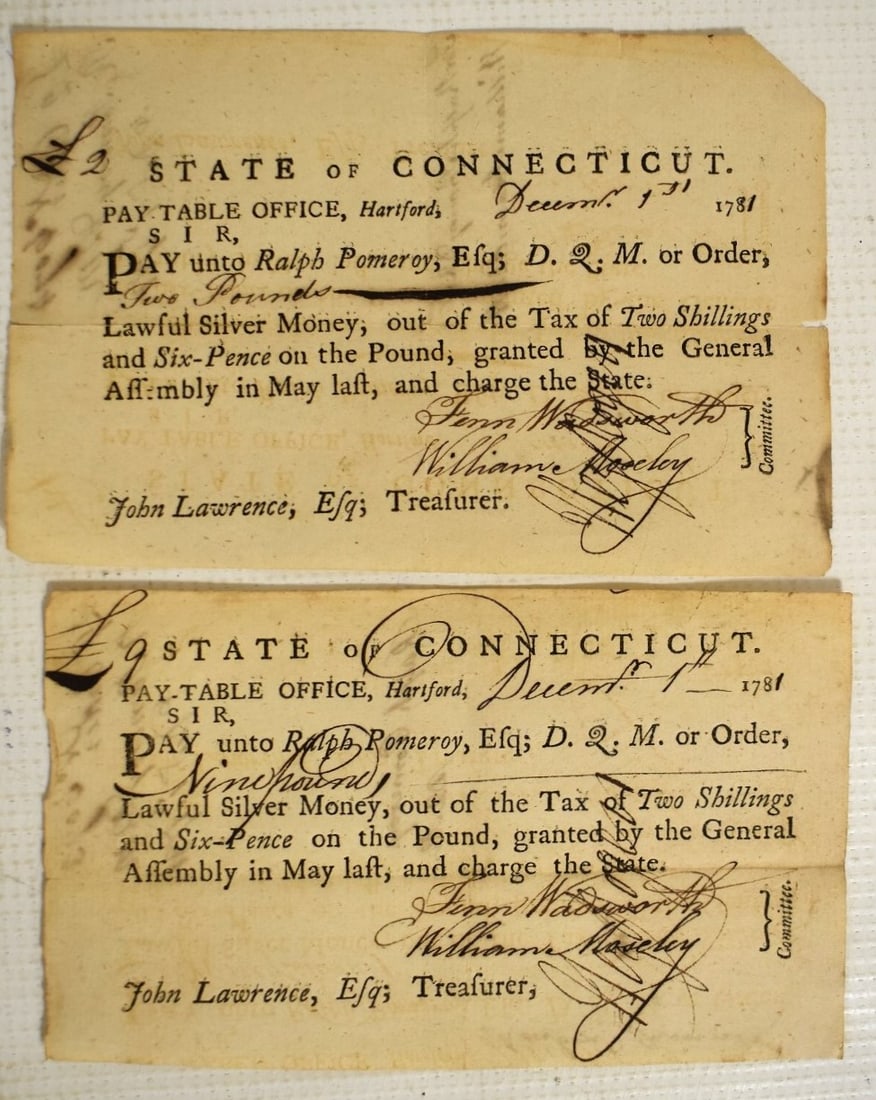 £ 2
STATE OF CONNECTICUT.
PAY-TABLE OFFICE, Hartford, Decemr. 1st 1781
SIR,
PAY unto Ralph Pomeroy, Eſq; D. Q. M. or Order,
Two Pounds
Lawful Silver Money, out of the Tax of Two Shillings
and Six-Pence on the Pound, granted by the General
Aſſembly in May laſt, and charge the State.
Fenn Wadsworth
William Moseley
} Committee.
John Lawrence, Eſq; Treaſurer.
£ 9
STATE OF CONNECTICUT.
PAY-TABLE OFFICE, Hartford, Decemr. 1st 1781
SIR,
PAY unto Ralph Pomeroy, Eſq; D. Q. M. or Order,
Nine pounds
Lawful Silver Money, out of the Tax of Two Shillings
and Six-Pence on the Pound, granted by the General
Aſſembly in May laſt, and charge the State.
Fenn Wadsworth
William Moseley
} Committee.
John Lawrence, Eſq; Treaſurer,